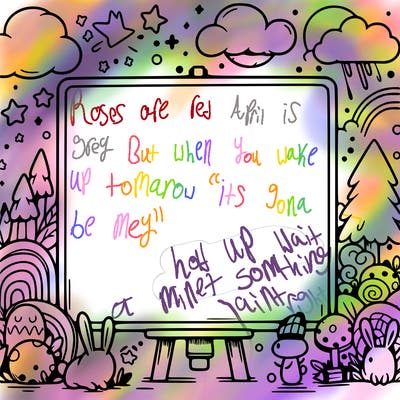 Roses are red April is
greg But when you wake
up tomarow "its gona
be mey"
hold up wait
a minet somthing
aint right